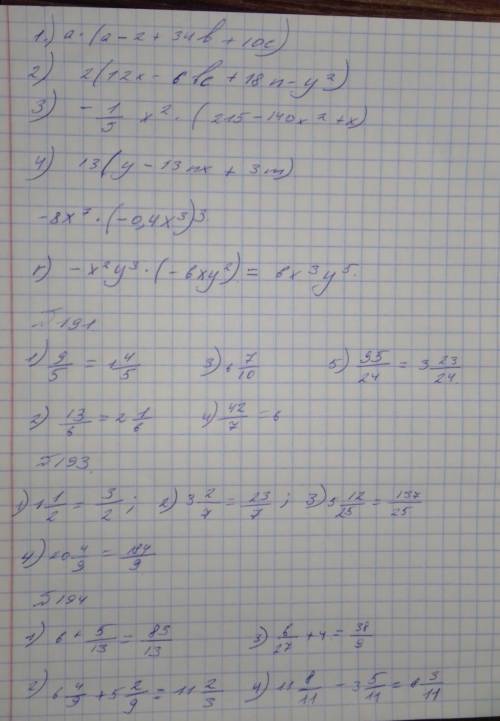 1) a · (a - 2 + 34b + 10c)
2) 2(12x - 6bc + 18n - y²)
3) - 1/5 x² · (215 - 140x² + x)
4) 13(y - 13nx + 3m)
-8x⁷ · (-0,4x³)³.
-x²y³ · (-6xy²) = 6x³y⁵.
191
1) 9/5 = 1 4/5   3) 6 7/10   5) 95/24 = 3 23/24
2) 13/6 = 2 1/6   4) 42/7 = 6
193
1) 1 1/2 = 3/2; 2) 3 2/7 = 23/7; 3) 5 12/25 = 137/25
4) 20 4/9 = 184/9
194
1) 6 + 5/13 = 83/13   3) 6/27 + 4 = 38/9
2) 6 4/9 + 5 2/9 = 11 2/3   4) 11 8/11 - 3 5/11 = 8 3/11